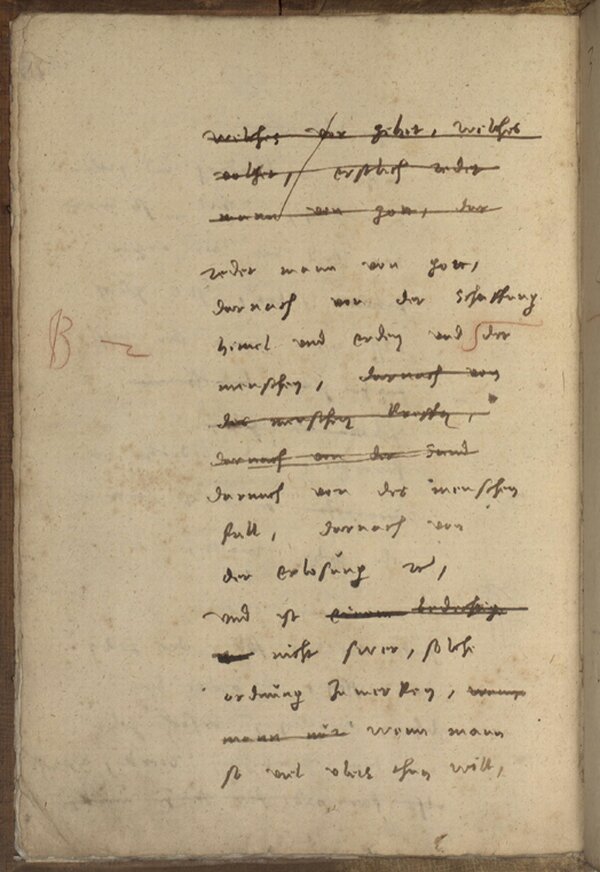 welches der gebet, welches
volget, erstlich redet
mann von gott, der
redet mann von gott,
darnach von der schaffung
himel und erden und der
menschen, darnach von
des menschen
darnach von der sund
darnach von des menschen
fall, darnach von
der erlosung rc,
und ist einem
nicht swer, solche
ordnung zu merken, wenn
mann nur wenn mann
so viel vleis thun will,